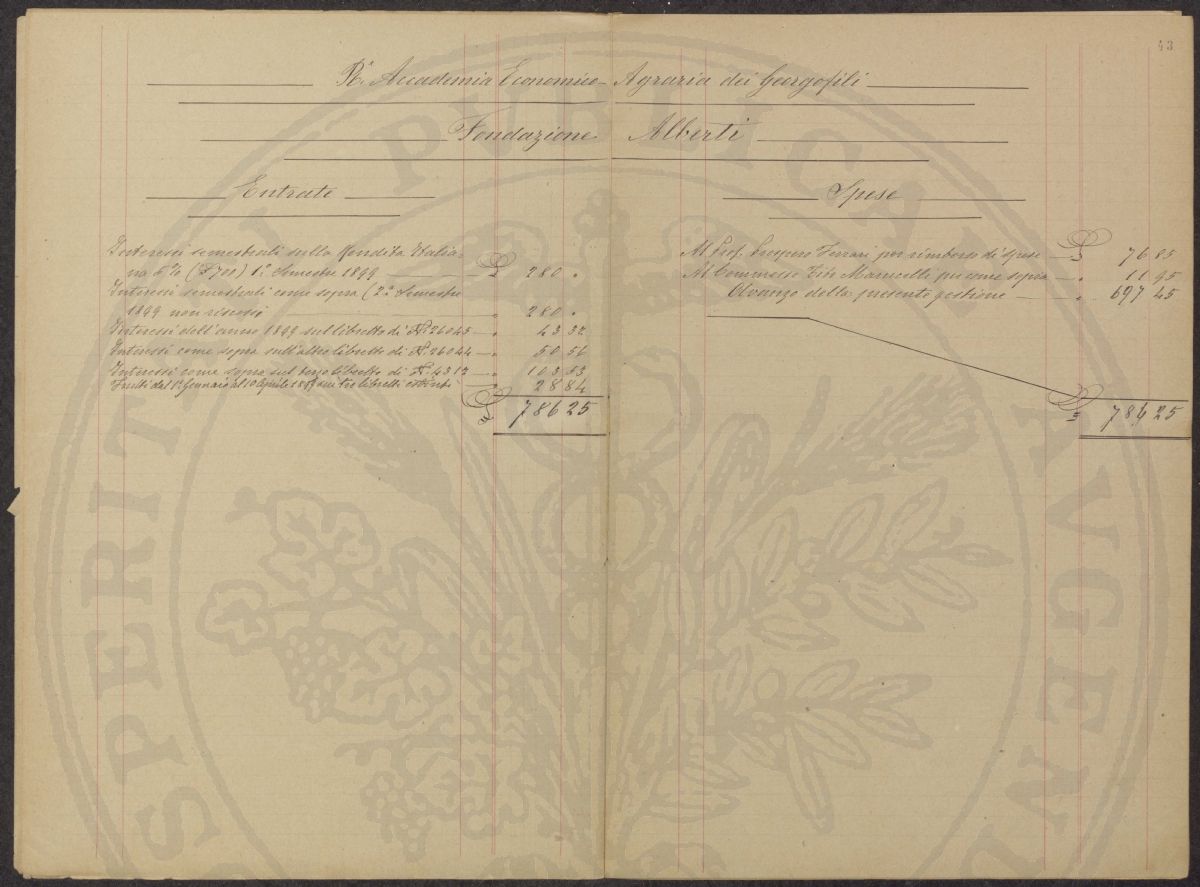 43
Rª. Accademia Economico-Agraria dei Georgofili
Fondazione Alberti
Entrate
Interessi semestrali sulla Rendita Italia-
na 5% (£700) 1º Semestre 1899 — £ 280 "
Interessi semestrali come sopra (2º Semestre
1899 non riscossi — " 280 "
Interessi dell'anno 1899 sul libretto di Nº 26045 — " 43 32
Interessi come sopra sull'altro libretto di Nº 26044 — " 50 56
Interessi come sopra sul terzo libretto di Nº 4312 — " 103 53
Frutti dal 1º Gennaio al 10 Aprile 1899 sui tre libretti estinti — " 28 84
£ 786 25
Spese
Al Prof. Prospero Ferrari per rimborso di spese — £ 76 85
Al Commesso Tito Marucelli per come sopra " 11 95
Avanzo della presente gestione — " 697 45
£ 786 25
PUBLICAE
AUGEN
SPERITATI